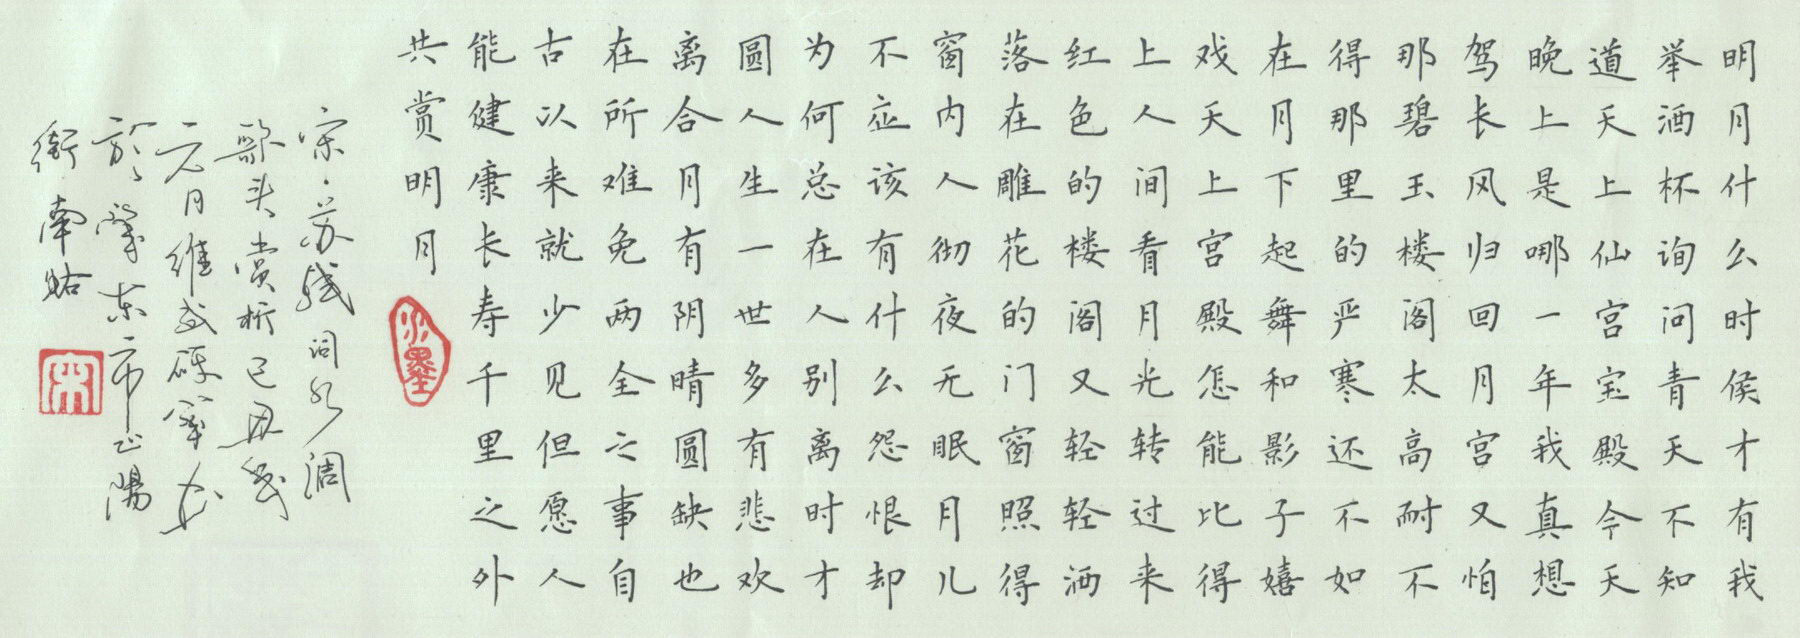 明月什么时侯才有我
举酒杯询问青天不知
道天上仙宫宝殿今天
晚上是哪一年我真想
驾长风归回月宫又怕
那碧玉楼阁太高耐不
得那里的严寒还不如
在月下起舞和影子嬉
戏天上宫殿怎能比得
上人间看月光转过来
红色的楼阁又轻轻洒
落在雕花的门窗照得
窗内人彻夜无眠月儿
不应该有什么怨恨却
为何总在人别离时才
圆人生一世多有悲欢
离合月有阴晴圆缺也
在所难免两全之事自
古以来就少见但愿人
能健康长寿千里之外
共赏明月
水墨
宋·苏轼词水调
歌头赏析己丑岁
元月维武
於肇东市正阳
街南
宋